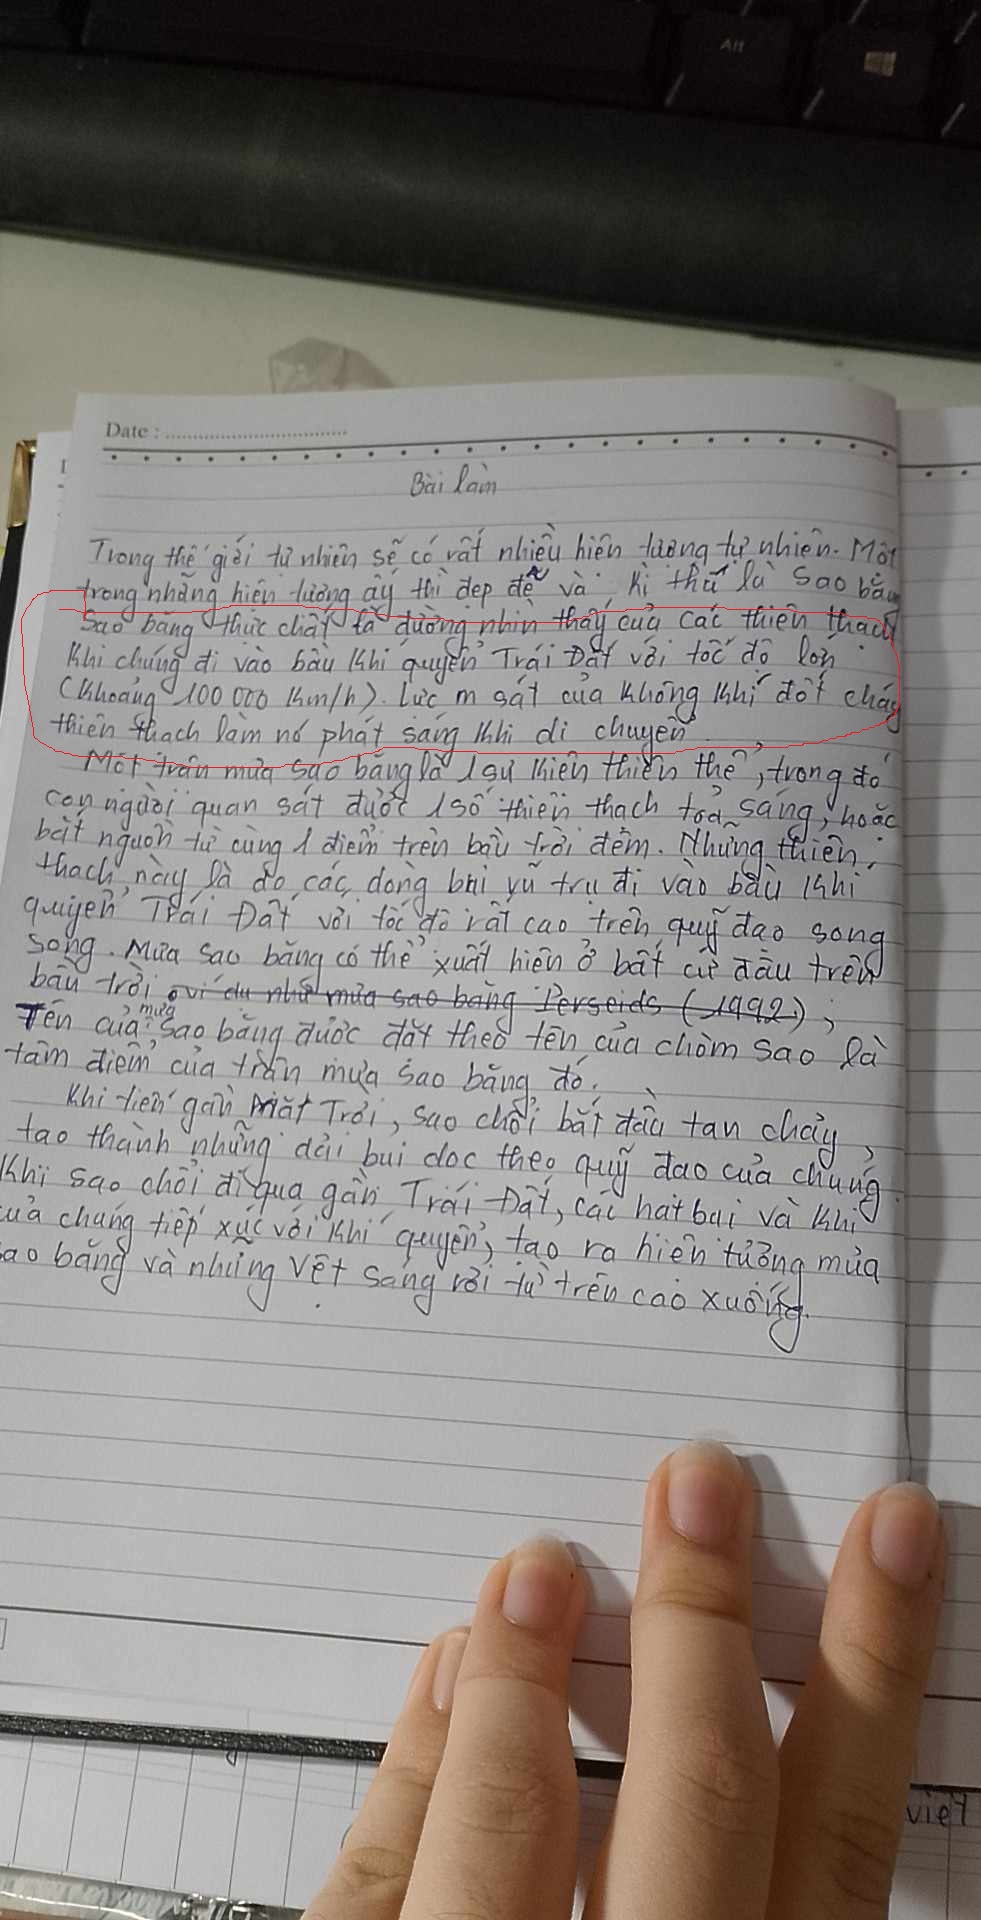 Alt
Date :
Bài làm
Trong thế giới tự nhiên sẽ có rất nhiều hiện tượng tự nhiên. Một
trong những hiện tượng ấy thì đẹp đẽ và kì thú là sao băng
Sao băng thực chất là đường nhìn thấy của các thiên thạch
khi chúng đi vào bầu khí quyển Trái Đất với tốc độ lớn
(khoảng 100 000 km/h). Lực m sát của không khí đốt cháy
thiên thạch làm nó phát sáng khi di chuyển.
Một trận mưa sao băng là 1 sự kiện thiên thể, trong đó
con người quan sát được 1 số thiên thạch toả sáng, hoặc
bắt nguồn từ cùng 1 điểm trên bầu trời đêm. Những thiên
thạch này là do các dòng bụi vũ trụ đi vào bầu khí
quyển Trái Đất với tốc độ rất cao trên quỹ đạo song
song. Mưa sao băng có thể xuất hiện ở bất cứ đâu trên
bầu trời, ví dụ như mưa sao băng Perseids (1992);
Tên của mưa sao băng được đặt theo tên của chòm sao là
tâm điểm của trận mưa sao băng đó.
Khi tiến gần mặt Trời, sao chổi bắt đầu tan chảy,
tạo thành những dải bụi dọc theo quỹ đạo của chúng.
Khi sao chổi đi qua gần Trái Đất, các hạt bụi và khí
của chúng tiếp xúc với khí quyển, tạo ra hiện tượng mưa
sao băng và những vệt sáng rơi từ trên cao xuống.
viết